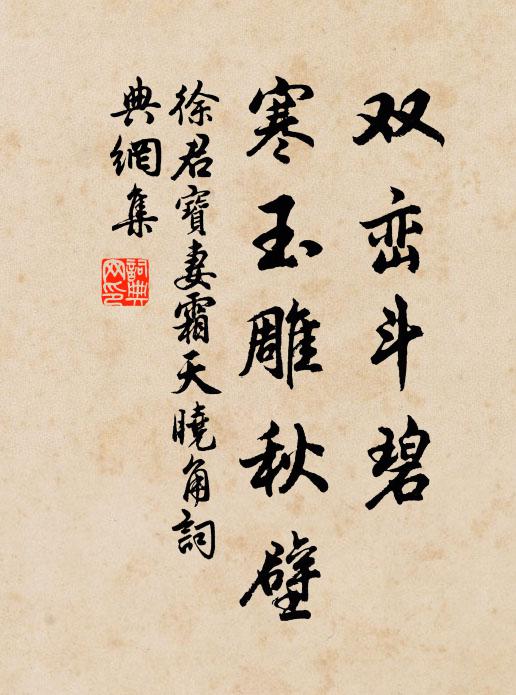 双峦斗碧
寒玉雕秋壁
徐君寶妻霜天曉角詞
典網集
詞典
网印